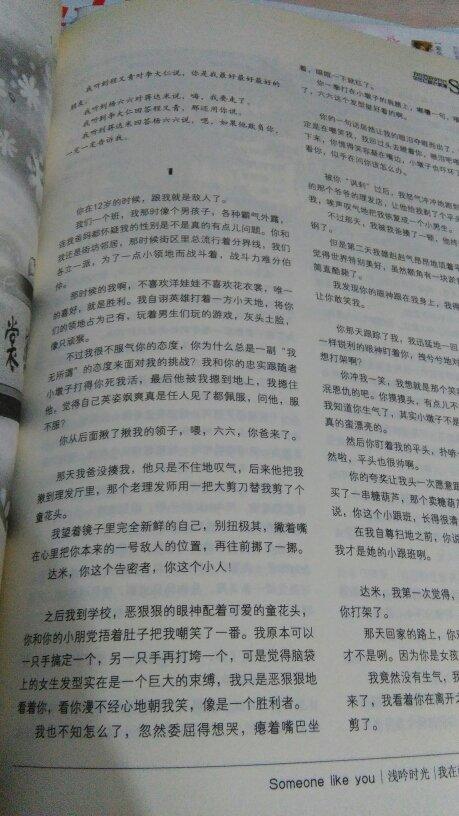 我听到程又青对李大仁说，你是我最好最好最好的
朋友。
我听到杨六六对蒋达米说，嗨，我要走了。
我听到李大仁回答程又青，那还用你说。
我听到蒋达米回答杨六六说，嗯，如果他欺负你，
一定一定告诉我。
你在12岁的时候，跟我就是敌人了。
我们一个班，我那时像个男孩子，各种霸气外露，
连我爸妈都怀疑我的性别是不是真的有点儿问题。你和
我还是街坊邻居，那时候街区里总流行着分界线，我们
各立一派，为了一点小领地而战斗着，战斗力难分伯
仲。
那时候的我啊，不喜欢洋娃娃不喜欢花衣裳，唯一
的喜好，就是胜利。我自诩英雄打着一方小天地，将你
们的领地占为己有，玩着男生们玩的游戏，灰头土脸，
像只顽猴。
不过我很不服气你的态度，你为什么总是一副“我
无所谓”的态度来面对我的挑战？我和你的忠实跟随者
小墩子打得你死我活，最后他被我摁到地上，我摁住
他，觉得自己英姿飒爽真是任人见了都佩服，问他，服
不服？
你从后面揪了揪我的领子，喂，六六，你爸来了。
那天我爸没揍我，他只是不住地叹气，后来他把我
揪到理发厅里，那个老理发师用一把大剪刀替我剪了个
童花头。
我望着镜子里完全新鲜的自己，别扭极其，撇着嘴
在心里把你本来的一号敌人的位置，再往前挪了一挪。
达米，你这个告密者，你这个小人！
之后我到学校，恶狠狠的眼神配着可爱的童花头，
你和你的小朋党捂着肚子把我嘲笑了一番。我原本可以
一只手搞定一个，另一只手再打垮一个，可是觉得脑袋
上的女生发型实在是一个巨大的束缚，我只是恶狠狠地
看着你，看你漫不经心地朝我笑，像是一个胜利者。
我也不知怎么了，忽然委屈得想哭，瘪着嘴巴坐
着，眼眶一下就红了。
你一拳打在小墩子的肩膀上，
了，六六这个发型挺好看的啊。
你的一句话居然让我的眼泪夺眶而出了，
定是在嘲笑我，我回过头去瞪着你，眼泪
下来，你慢得笑容凝在嘴边，小墩子也
看你，似乎在问你该怎么办。
被你“讽刺”过后，我怒气冲冲地跑到
的那个爷爷的理发店，让他给我剃了个平头
我，唉声叹气地把我恢复成一个小男生。
不过那天，我被我爸揍了一顿，他终
钢了。
但是第二天我雄赳赳气昂昂地顶着
觉得世界特别美好，虽然额角有一块淤
简直酷毙了。
我发现你的眼神跟在我身上，我得
让你敢笑我。
你那天跟踪了我，我迅猛地一回
一样锐利的眼神盯着你，拽兮兮地对
想打架啊？
你冲我一笑，我憋就是那个笑
泯恩仇的吧。你摸摸头，有点儿不
我知道你生气了，其实小墩子不是
真的蛮漂亮的。
然后你盯着我的平头，扑哧一
然啦，平头也很帅啊。
你的夸奖让我头一次愿意跟
买了一串糖葫芦，那个卖糖葫芦
说，你这个小跟班，长得很清
在我自尊扫地之前，你说
我才是她的小跟班咧。
达米，我第一次觉得，
你打架了。
那天回家的路上，你对
才不是咧。因为你是女孩
我竟然没有生气，我
来了，我看着你在离开
剪了。
Someone like you｜浅吟时光｜我在